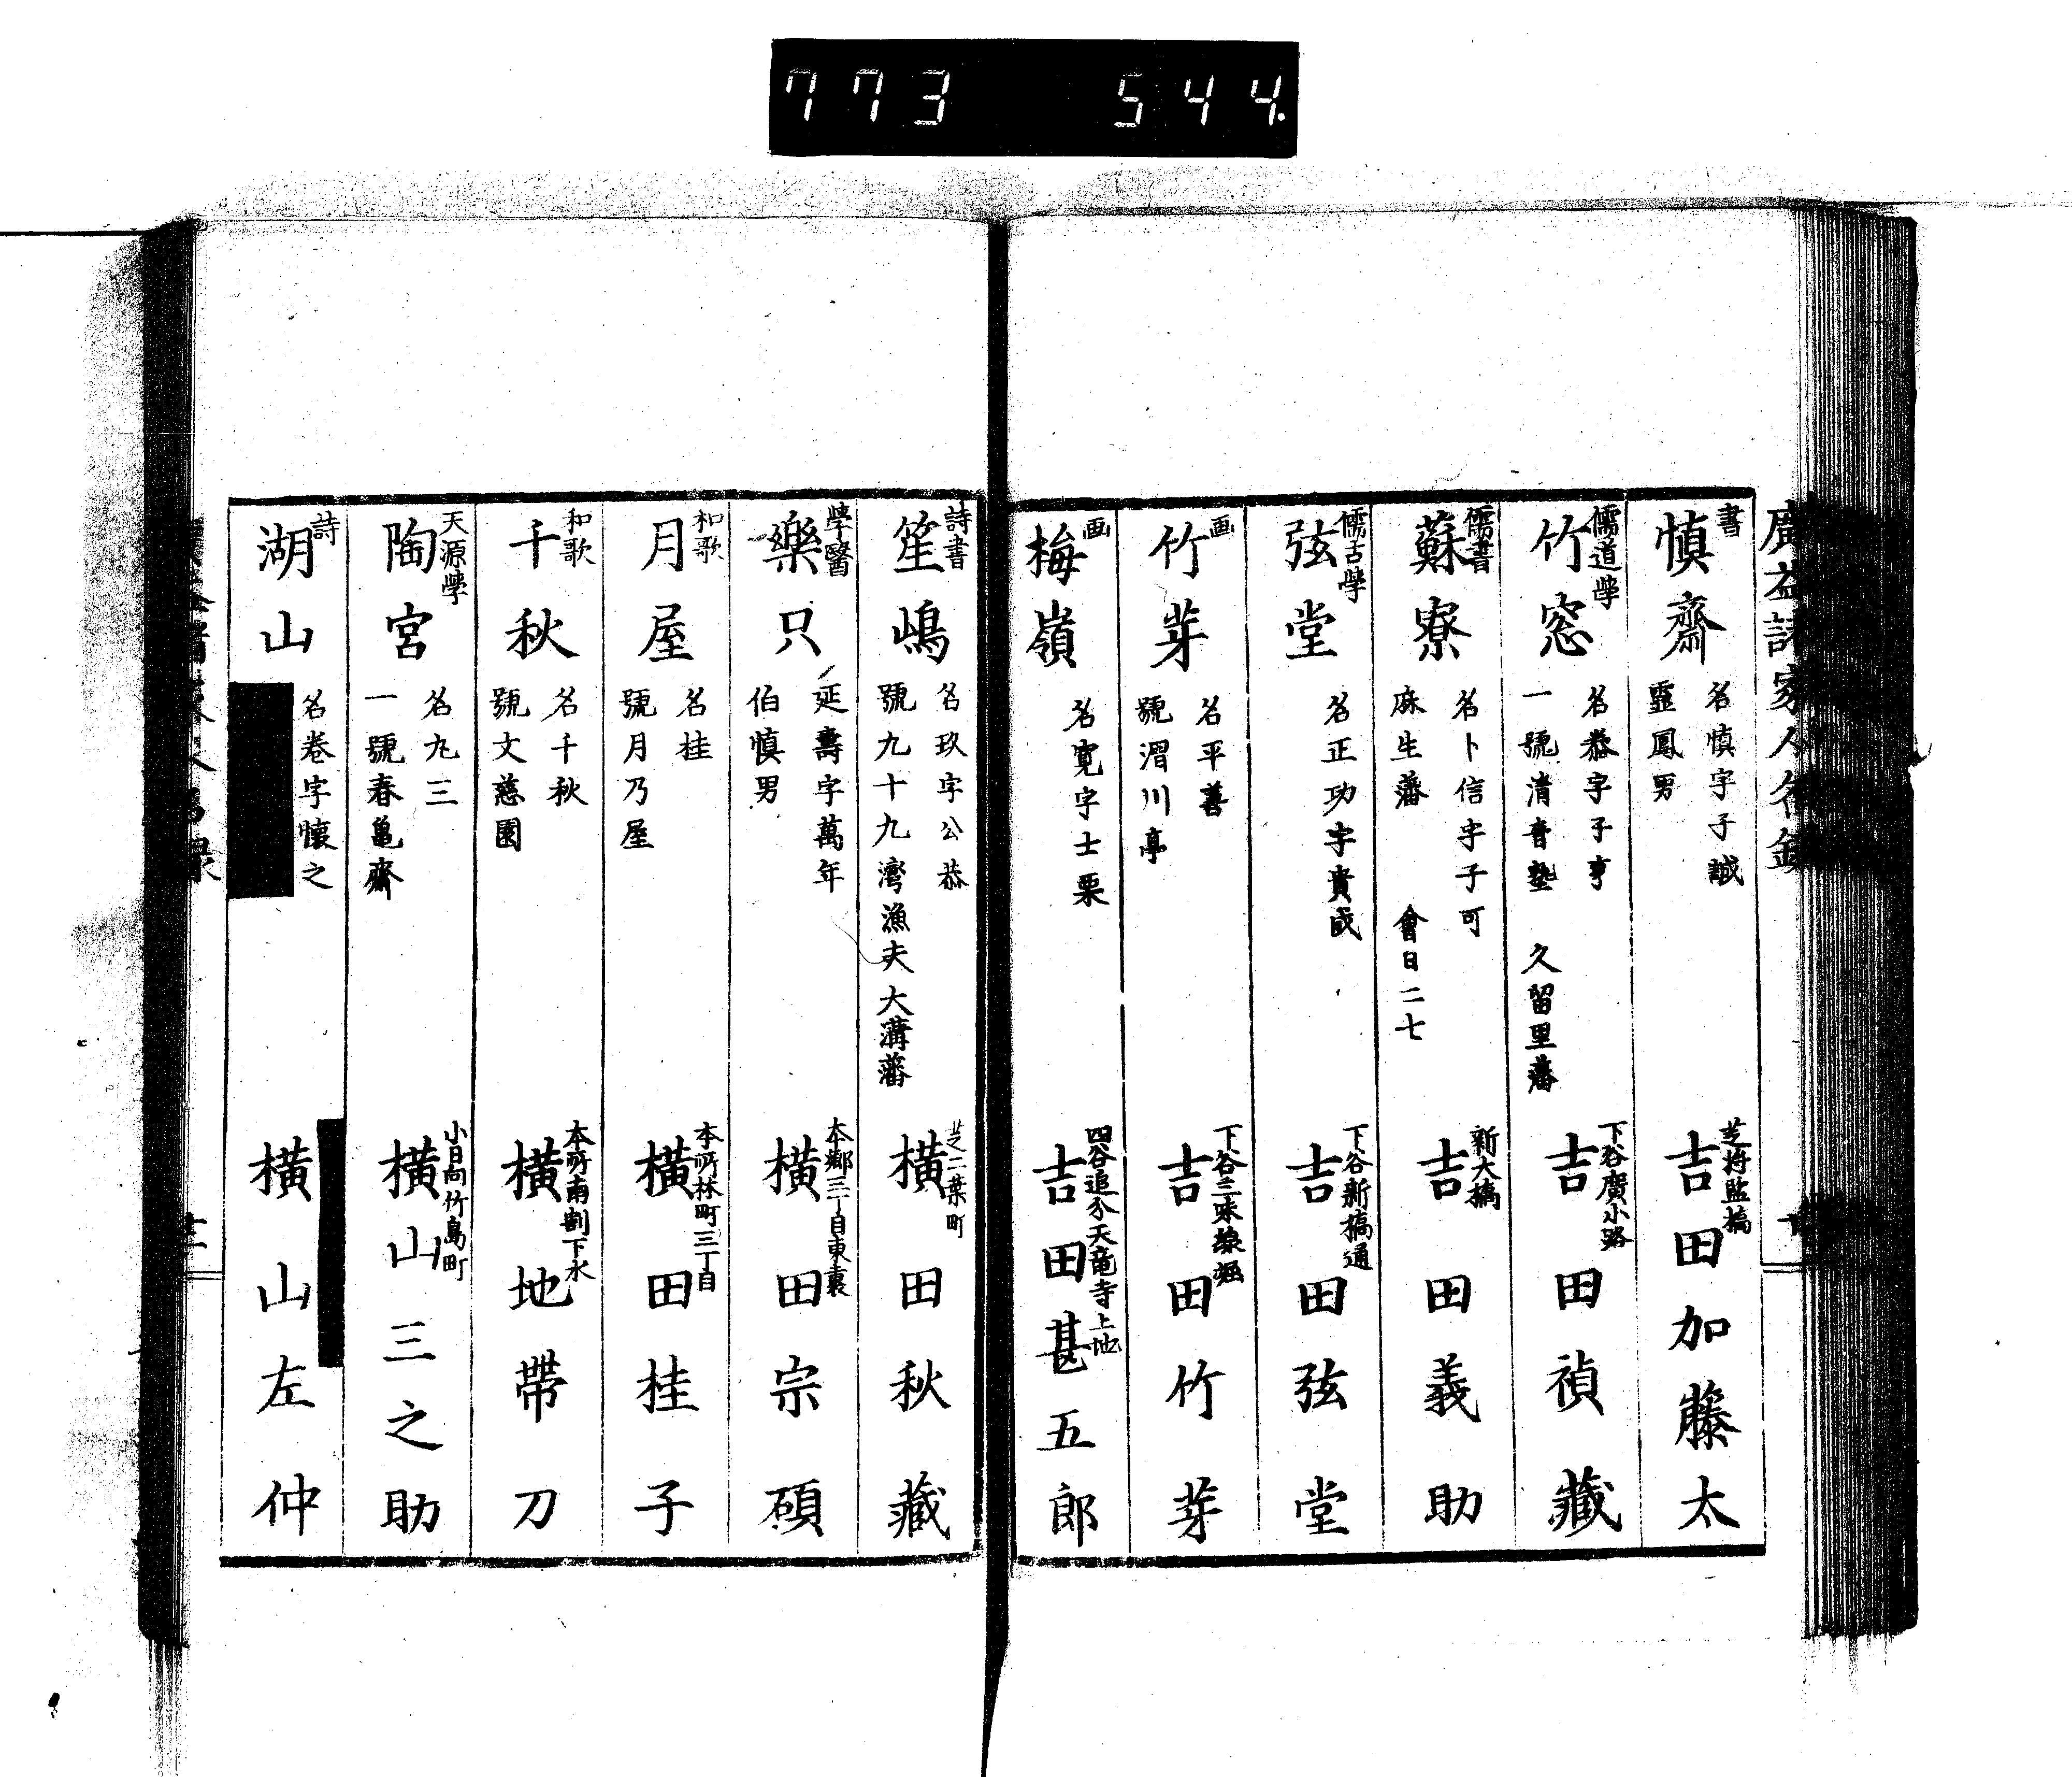 773 544.
廣益諸家人名録
書
慎齋
名慎字子誠
靈鳳男
芝将監橋
吉田加藤太
儒道學
竹窓
名恭字子亨
一號清音塾 久留里藩
下谷廣小路
吉田禎藏
儒書
蘇寮
名卜信字子可
麻生藩 會日二七
新大橋
吉田義助
儒古學
弦堂
名正功字貴成
下谷新橋通
吉田弦堂
画
竹芽
名平善
號渭川亭
下谷三味線堀
吉田竹芽
画
梅嶺
名寛字士栗
四谷追分天竜寺上地
吉田甚五郎
詩書
笙嶋
名玖字公恭
號九十九灣漁夫大溝藩
芝二葉町
横田秋藏
學醫
樂只
延壽字萬年
伯慎男
本郷三丁目東裏
横田宗碩
和歌
月屋
名桂
號月乃屋
本所林町三丁目
横田桂子
和歌
千秋
名千秋
號文慈園
本所南割下水
横地帶刀
天源學
陶宮
名九三
一號春亀齋
小日向竹島町
横山三之助
詩
湖山
名巻字懐之
横山左仲